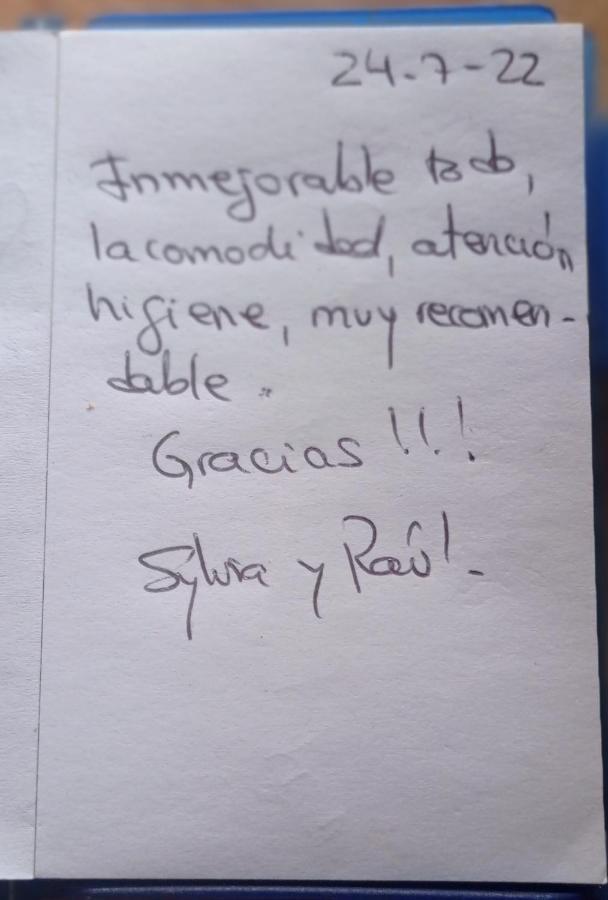 24-7-22
Inmejorable todo,
la comodidad, atención
higiene, muy recomen-
dable.
Gracias !!!
Sylvia y Raúl.-